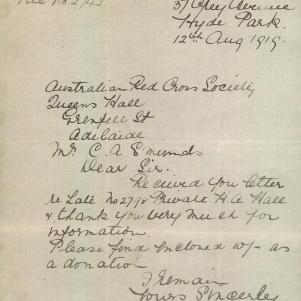 File No 2742.
37 Opey Avenue
Hyde Park.
12th Aug 1919.
Australian Red Cross Society
Queens Hall
Grenfell St
Adelaide.
Mr. C. A. Edmunds
Dear Sir.
Received you letter
re Late No 2798 Private H. A. Hall
& thank you very much for
information.
Please find Inclosed 10/- as
a donation
I Remain
Yours Sincerley